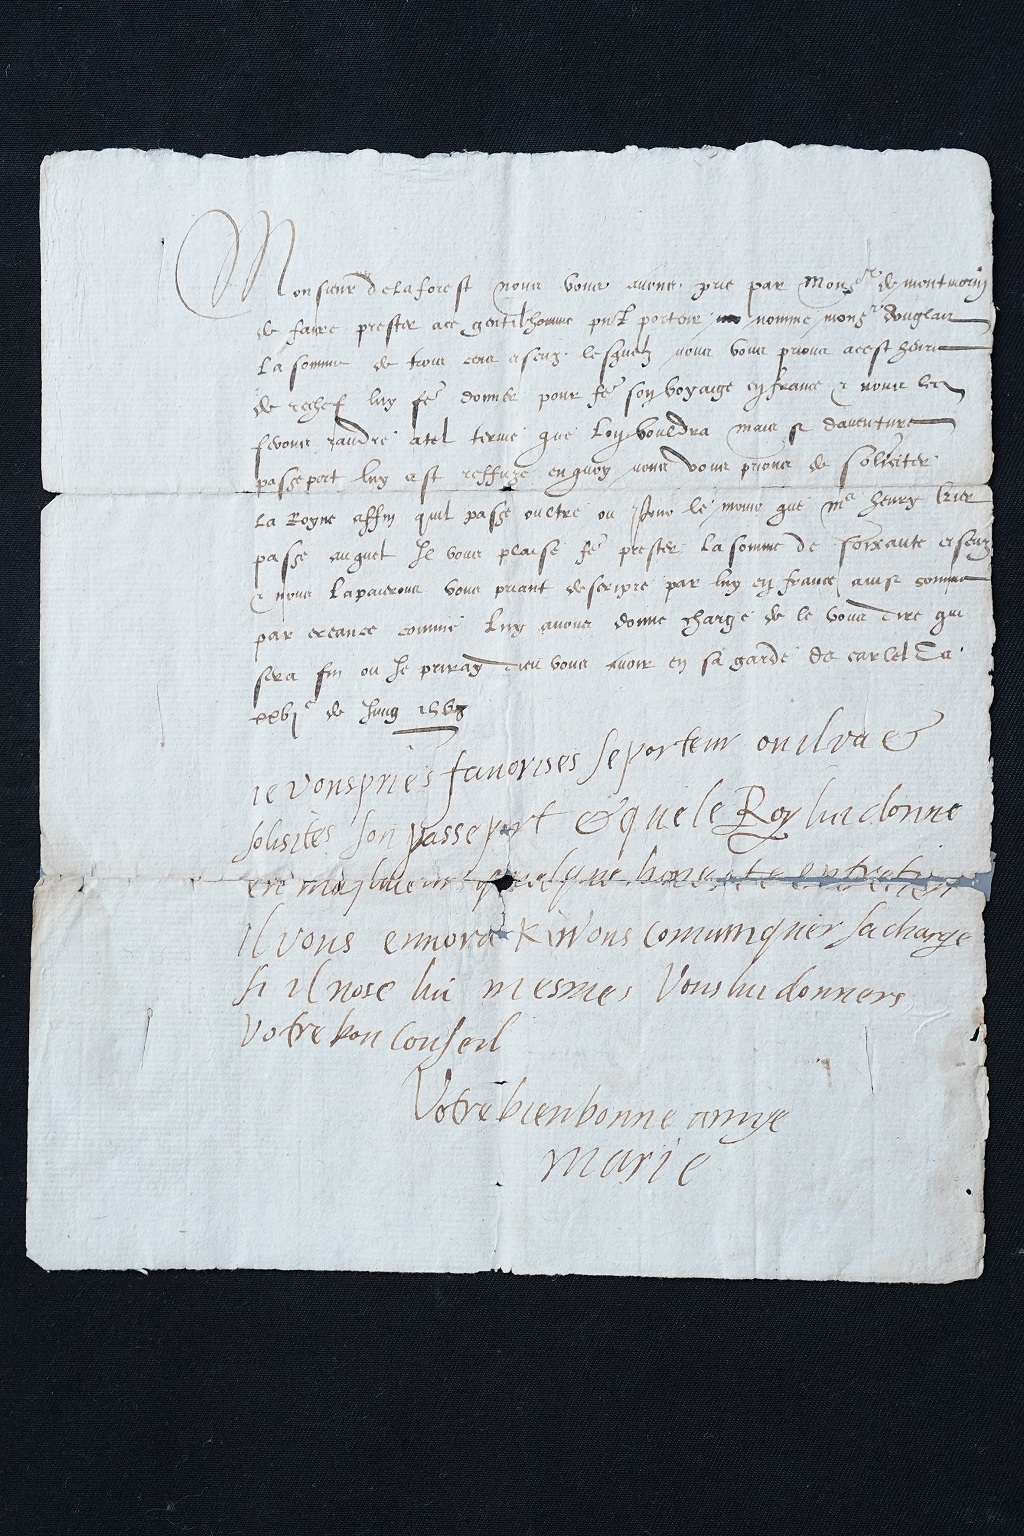 Monsieur delaforest nous vous avons prie par Monsr de montmorin
de faire prester ace gentilhomme pnt porteur nomme monsr douglas
La somme de trois cens escuz lesquelz nous vous prions acest heure
de rechef luy fe donner pour fe son voyaige en france &
ferons randre atel terme que Lon vouldra mais si daventure
passeport luy est reffuze en quoy nous vous prions de soliciter
La Royne affin quil passe oultre ou pour le moins que mr henry
passe auquel Il vous plaise fe prester La somme de soixante escuz
& nous Lapaierons vous priant descripre par luy en france ainsi comme
par creance comme Luy avons donne charge de le vous dire qui
sera fin ou Je priray dieu vous avoir en sa garde de carlel Ce
xxvje de Jung 1568
ie vous pries favorises se porteur ou il va &
solisites son passeport & que le Roy lui donne
quelque honeste entretien
Il vous comuniquer sa charge
si il nose lui mesmes Vous lui donneres
Votre bon Conseil
Votre bien bonne amye
Marie